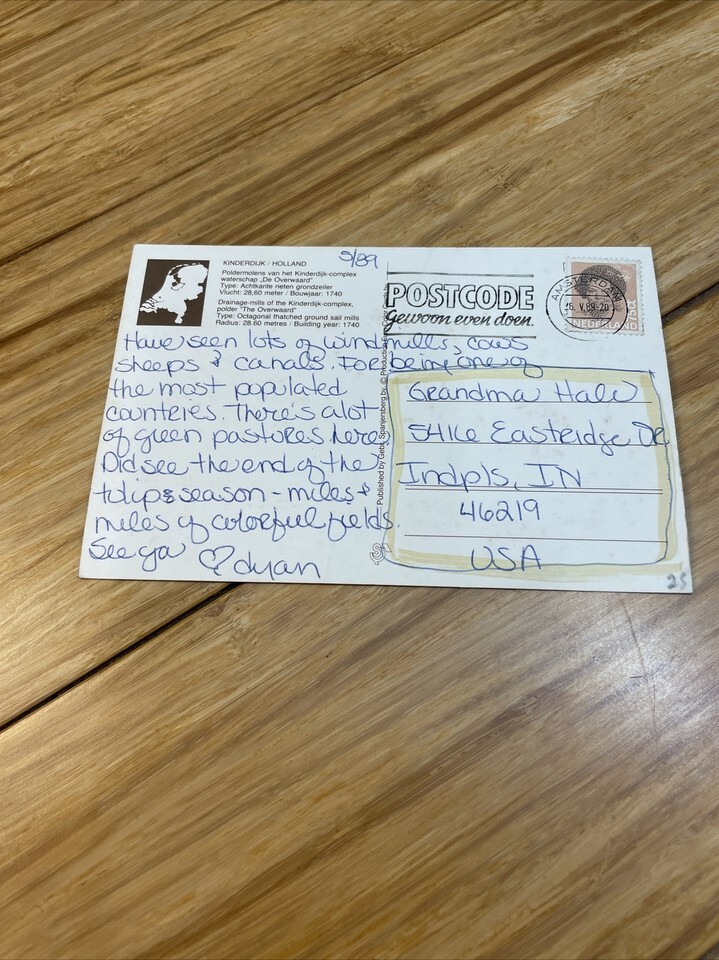 KINDERDIJK / HOLLAND
Poldermolens van het Kinderdijk-complex
waterschap „De Overwaard"
Type: Achtkante rieten grondzeiler
Vlucht: 28,60 meter / Bouwjaar: 1740
Drainage-mills of the Kinderdijk-complex,
polder "The Overwaard"
Type: Octagonal thatched ground sail mills
Radius: 28.60 metres / Building year: 1740
5/89
Have seen lots of windmills, cows
sheeps & canals. For being one of
the most populated
counteries. There's alot
of green pastures here
Did see the end of the
tulips season - miles +
miles of colorful fields.
See ya ♡ dyan
Published by Gebr. Spanjersberg bv. © Production
POSTCODE
Gewoon even doen.
AMSTERDAM
16.V.89-20
NEDERLAND
Grandma Hale
5416 Easteidge DR
Indpls, IN
46219
USA
25